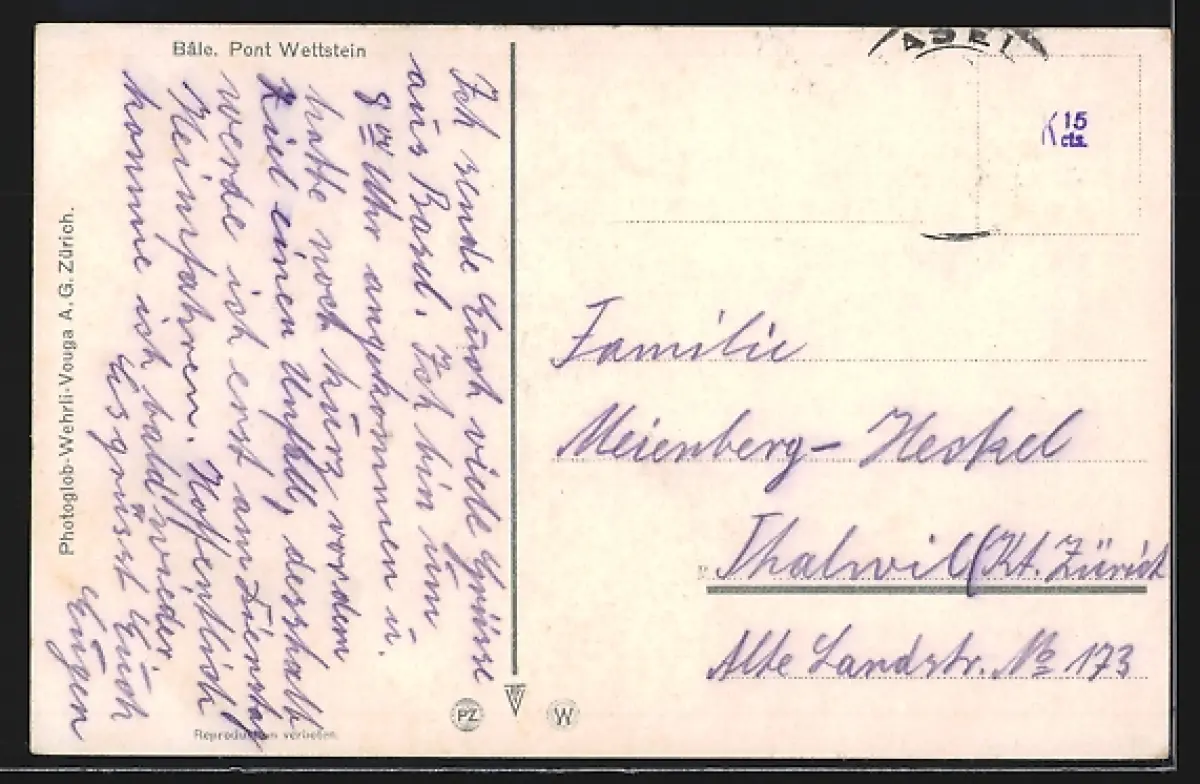 Bâle. Pont Wettstein
Ich sende Euch viele Grüsse
aus Basel. Ich bin um
8 Uhr angekommen u.
hatte noch kurz vor dem
Ziel einen Unfall, desshalb
werde ich erst am Dienstag
Heimfahren. Hoffentlich
komme ich bald wieder
Es grüsst Euch
Eugen
Photoglob-Wehrli-Vouga A. G. Zürich.
Reproduktion verboten.
PZ
W
15
cts.
Familie
Meienberg-Heskel
Thalwil (Kt. Zürich
Alte Landstr. No 173